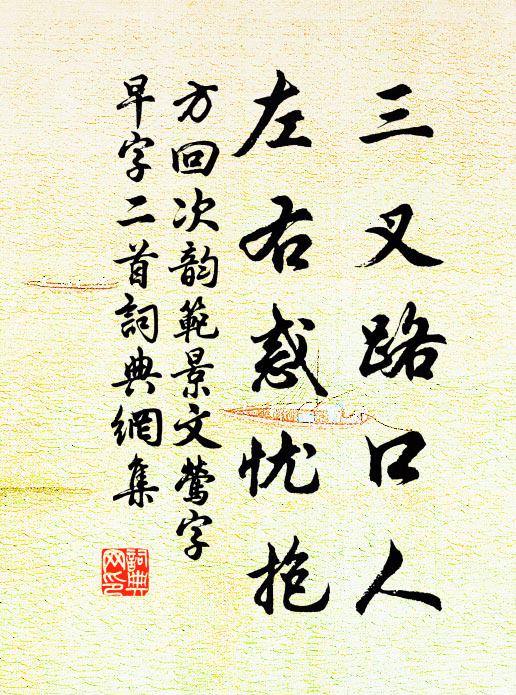 三叉路口人
左右惑忧抱
方回次韵範景文莺字
早字二首詞典網集
詞典
网印